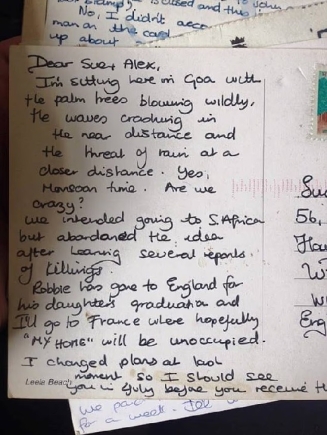 No, I didn't
man on the card
up about
Dear Sue + Alex,
I'm sitting here in Goa with
the palm trees blowing wildly,
the waves crashing in
the near distance and
the threat of rain at a
closer distance. Yes,
Monsoon time. Are we
crazy?
We intended going to S. Africa
but abandoned the idea
after hearing several reports
of killings.
Robbie has gone to England for
his daughters graduation and
I'll go to France where hopefully
"MY HOME" will be unoccupied.
I changed plans at last
moment so I should see
Leela Beach
you in July before you receive th
56,
Eng
we
for a week.